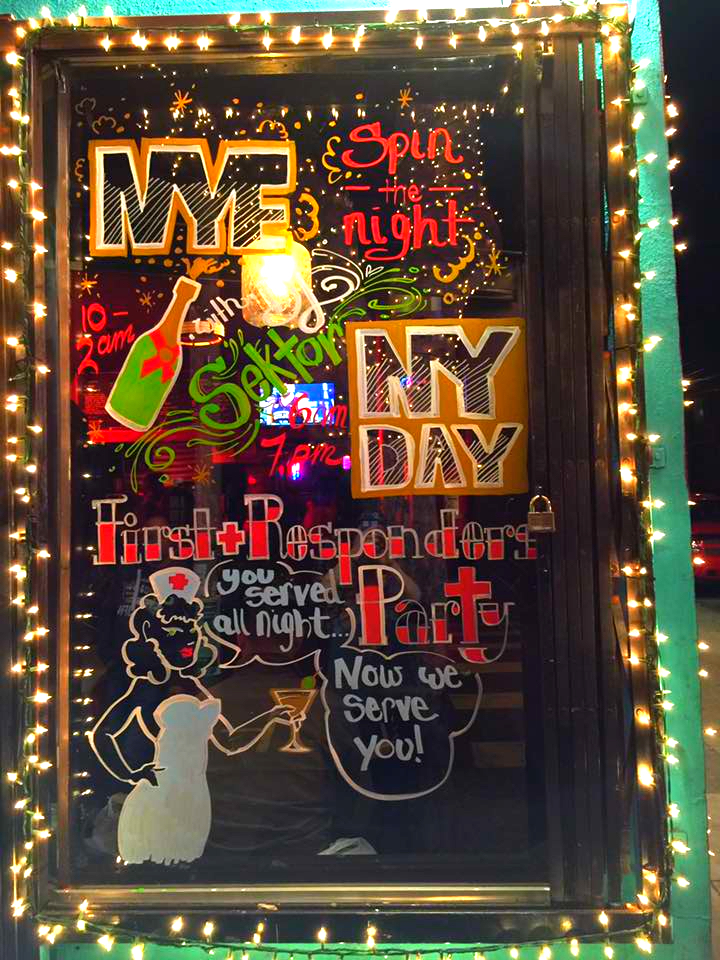 NYE
Spin
the
night
10-
2am
with DJ
Sektor
NY
DAY
6am
7pm
First + Responders
Party
you
served
all night...
Now we
serve
you!